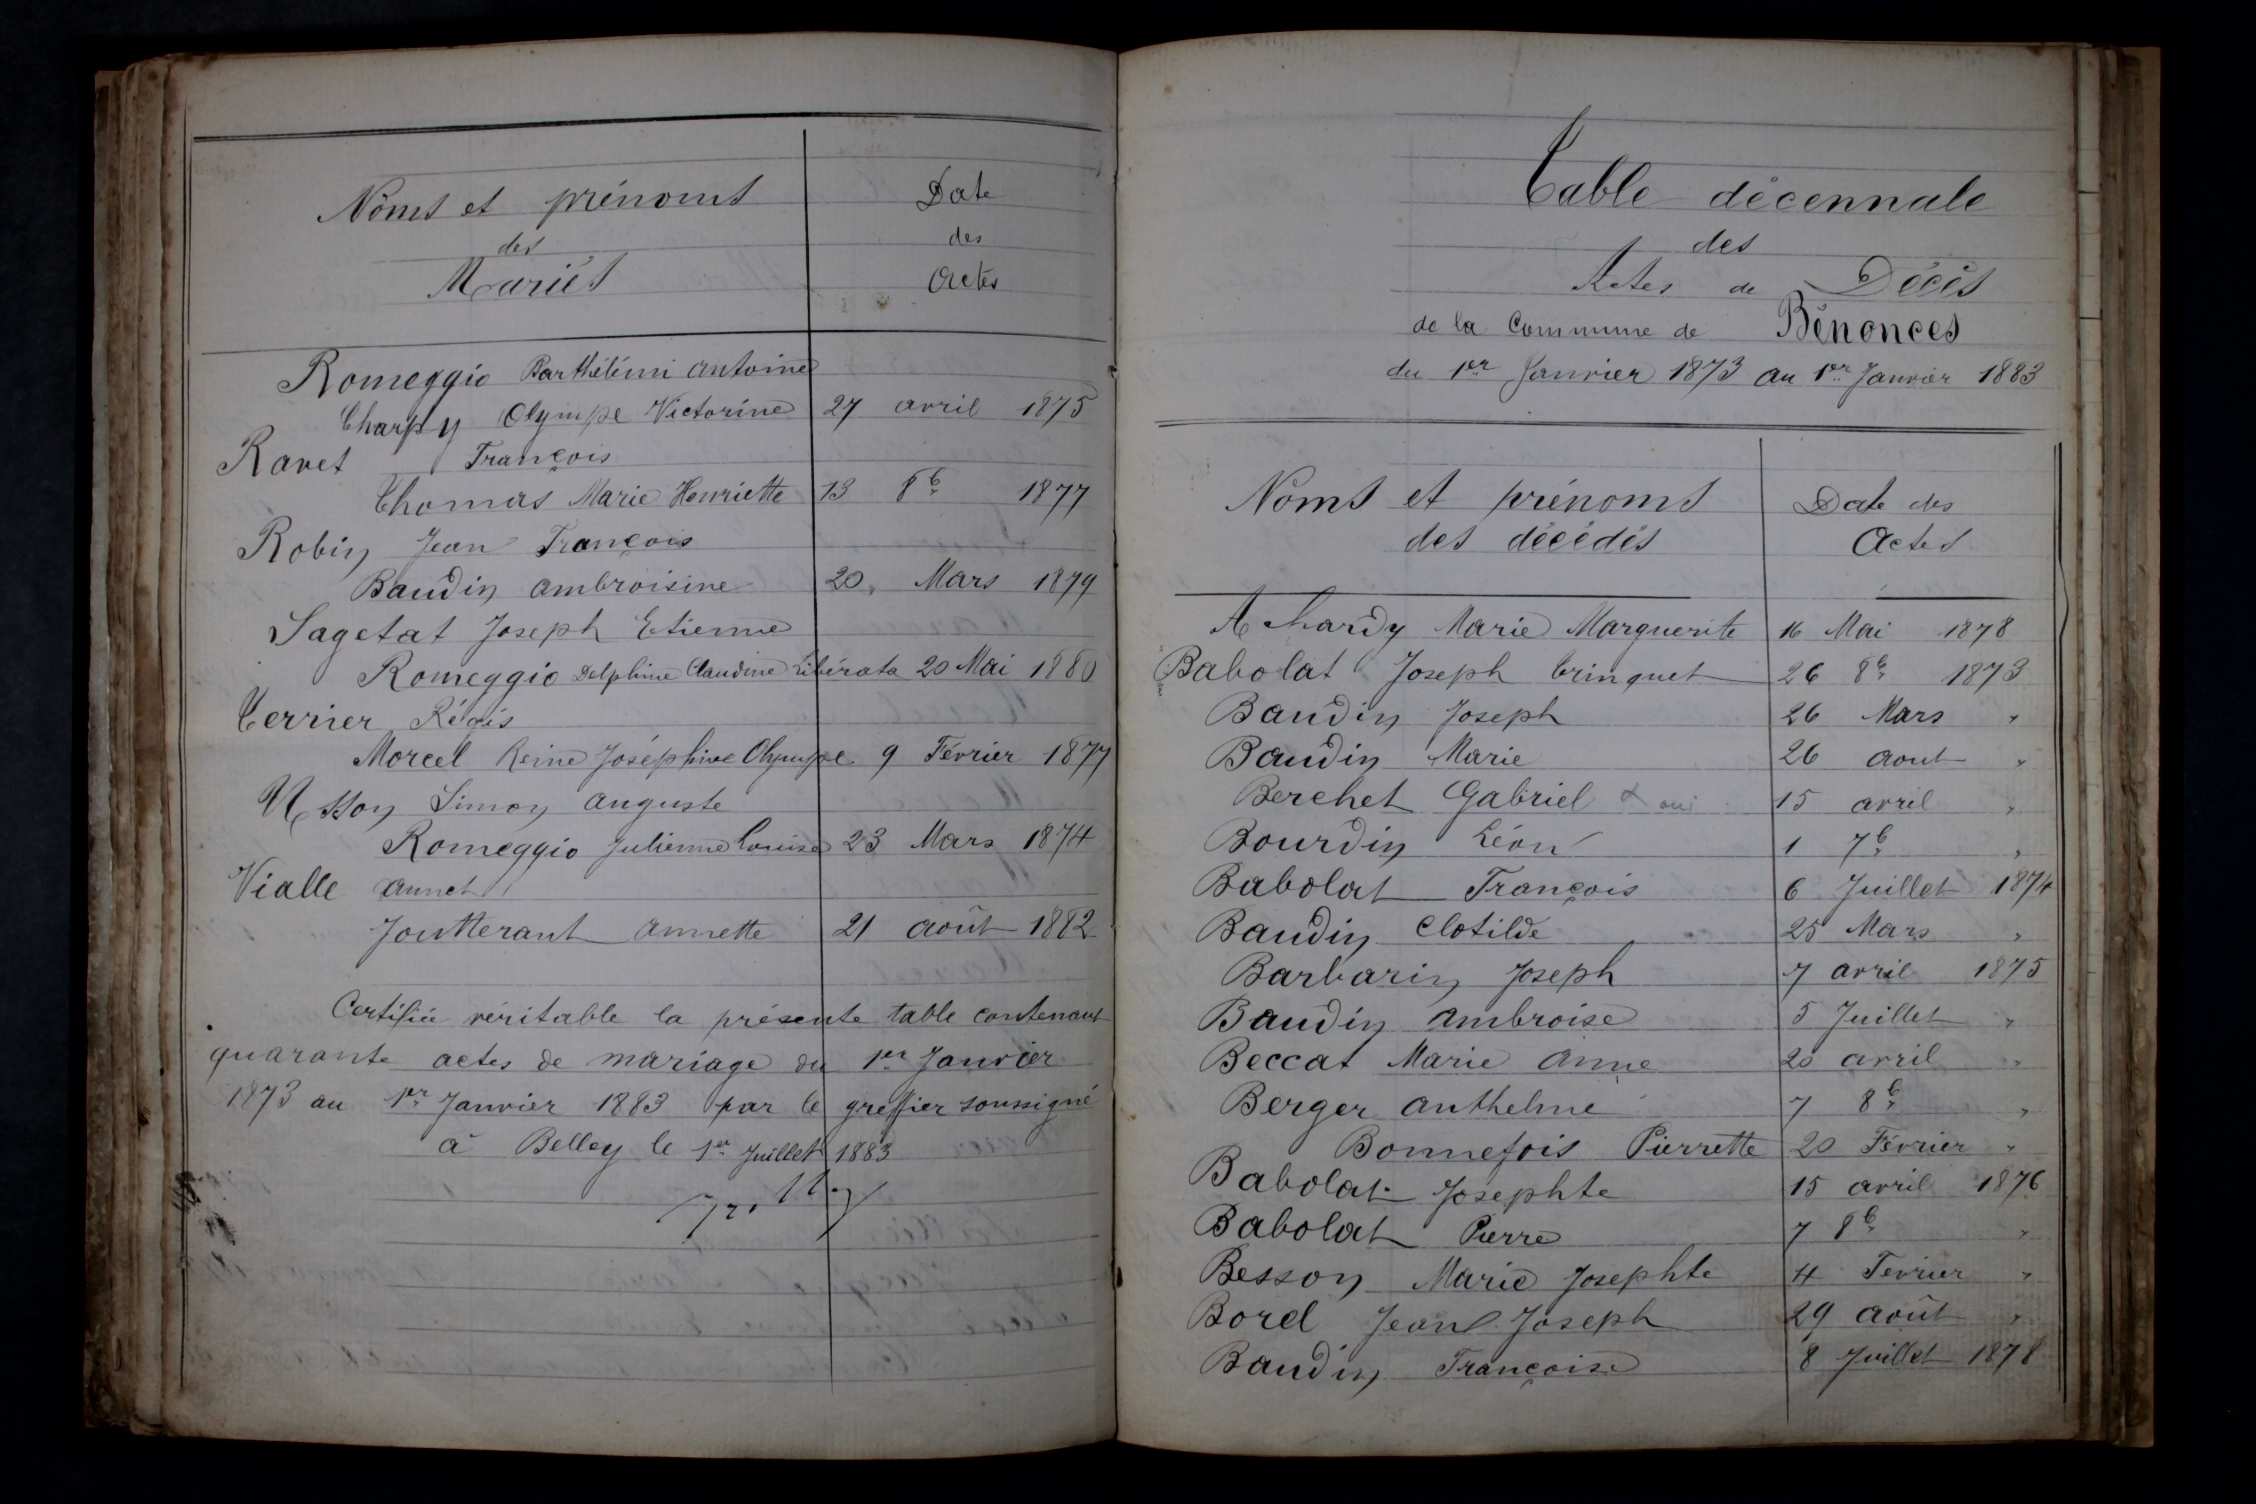 Noms et prénoms
des
Mariés
Date
des
Actes
Romeggio Barthélémi Antoine
Charpy Olympe Victorine 27 avril 1875
Ravet François
Thomas Marie Henriette 13 8bre 1877
Robin Jean François
Baudin Ambroisine 20 Mars 1879
Sagetat Joseph Etienne
Romeggio Delphine Claudine Libérata 20 Mai 1880
Terrier Régis
Morcel Reine Joséphine Olympe 9 Février 1877
Usson Simon Auguste
Romeggio Julienne Louise 23 Mars 1874
Vialle Annet
Joutterant Annette 21 août 1882
Certifiée véritable la présente table contenant
quarante actes de mariage du 1er Janvier
1873 au 1er Janvier 1883 par le greffier soussigné
à Belley le 1er Juillet 1883
Table décennale
des
Actes de Décès
de la Commune de Bénonces
du 1er Janvier 1873 au 1er Janvier 1883
Noms et prénoms
des décédés
Date des
Actes
Achardy Marie Marguerite 16 Mai 1878
Babolat Joseph Crinquet 26 8bre 1873
Baudin Joseph 26 Mars "
Baudin Marie 26 aout "
Berchet Gabriel 15 avril "
Bourdin Léon 1 7bre "
Babolat François 6 Juillet 1874
Baudin Clotilde 25 Mars "
Barbarin Joseph 7 avril 1875
Baudin Ambroise 5 Juillet "
Beccat Marie Anne 20 avril "
Berger Anthelme 7 8bre "
Bonnefois Pierrette 20 Février "
Babolat Josephte 15 avril 1876
Babolat Pierre 7 8bre "
Besson Marie Josephte 4 Fevrier "
Borel Jean Joseph 29 août "
Baudin Françoise 8 Juillet 1878